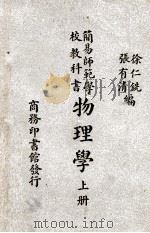 徐仁銑
張有清
編
簡易師範學
校教科書
物理學
上册
商務印書館發行